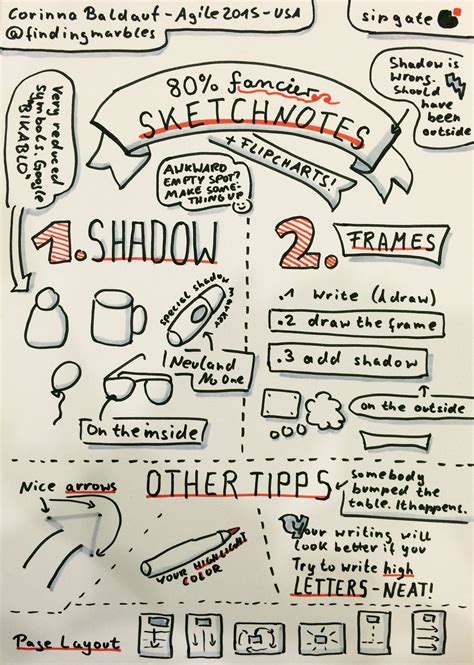 Corinna Baldauf - Agile2015 - USA
@findingmarbles
sipgate
80% fancier
SKETCHNOTES
+ FLIPCHARTS!
Shadow is
wrong.
Should
have been
outside
Very reduced
symbols. Google
"BIKABLO"
AWKWARD
EMPTY SPOT?
MAKE SOME-
THING UP
1. SHADOW
special shadow
marker
Neuland
No One
On the inside
2. FRAMES
.1 write (& draw)
.2 draw the frame
.3 add shadow
on the outside
OTHER TIPPS
Nice arrows
YOUR HIGHLIGHT
COLOR
somebody
bumped the
table. It happens.
Your writing will
look better if you
Try to write high
LETTERS - NEAT!
Page Layout